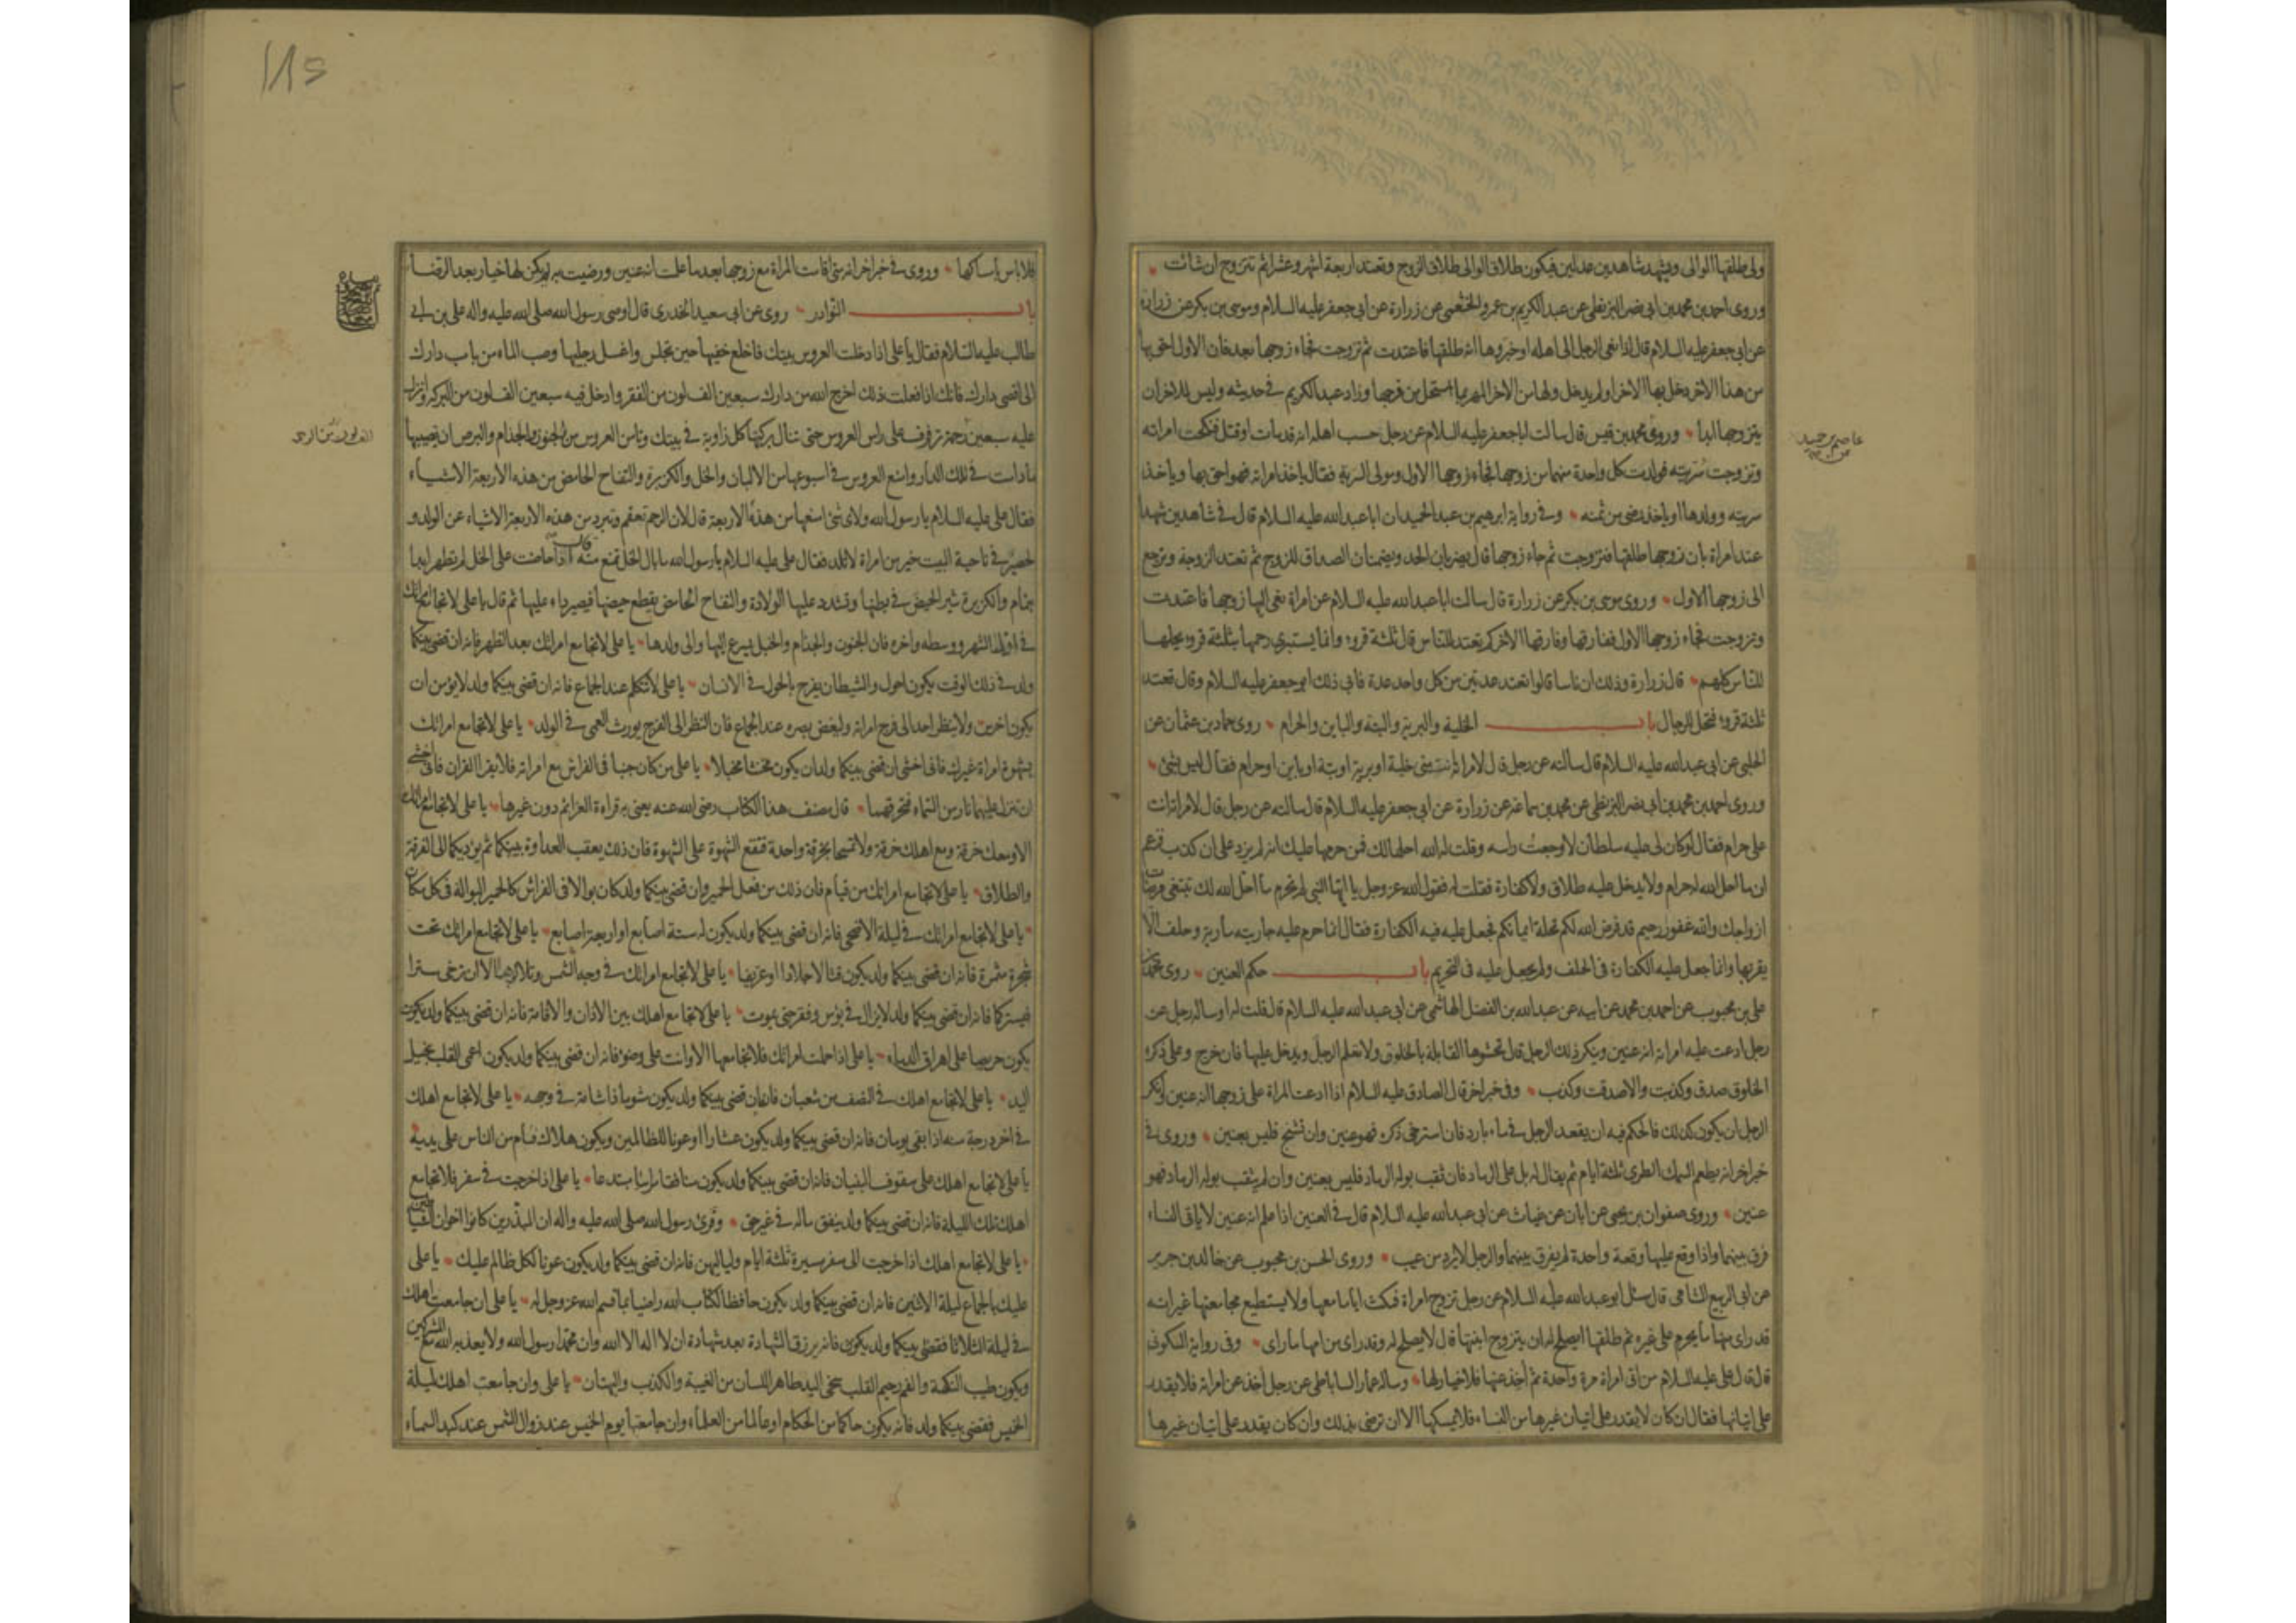 ولى طلقها الوالى ويشهد شاهدين عدلين فيكون طلاق الوالى طلاق الزوج وتعتد اربعة اشهر وعشرا ثم تتزوج ان شائت
وروى احمد بن محمد بن ابى نصر البزنطى عن عبد الكريم بن عمرو الخثعمى عن زرارة عن ابى جعفر عليه السلام وموسى بن بكر عن زرارة
عن ابى جعفر عليه السلام قال اذا نعى الرجل الى اهله او خبروها انه طلقها فاعتدت ثم تزوجت فجاء زوجها بعد فان الاول احق بها
من هذا الاخر دخل بها الاخر او لم يدخل ولها من الاخر المهر بما استحل من فرجها وزاد عبد الكريم فى حديثه وليس للاخر ان
يتزوجها ابدا وروى محمد بن قيس قال سالت ابا جعفر عليه السلام عن رجل حسب اهله انه قد مات او قتل فنكحت امراته
وتزوجت سريته فولدت كل واحدة منهما من زوجها فجاء زوجها الاول ومولى السرية فقال ياخذ امراته فهو احق بها وياخذ
سريته وولدها او ياخذ رضى من ثمنه وفى رواية ابرهيم بن عبد الحميد ان ابا عبد الله عليه السلام قال فى شاهدين شهدا
عند امراة بان زوجها طلقها فتزوجت ثم جاء زوجها قال يضربان الحد ويضمنان الصداق للزوج ثم تعتد الزوجة وترجع
الى زوجها الاول وروى موسى بن بكر عن زرارة قال سالت ابا عبد الله عليه السلام عن امراة نعى اليها زوجها فاعتدت
وتزوجت فجاء زوجها الاول ففارقها وفارقها الاخر كم تعتد للناس قال ثلثة قروء وانما يستبرئ رحمها بثلثة قروء يحلها
للناس كلهم قال زرارة وذلك ان ناسا قالوا تعتد عدتين من كل واحد عدة فابى ذلك ابو جعفر عليه السلام وقال تعتد
ثلثة قروء فتحل للرجال باب الخلية والبرية والبتة والباين والحرام روى حماد بن عثمان عن
الحلبى عن ابى عبد الله عليه السلام قال سالته عن رجل قال لامراته انت منى خلية او برية او بتة او باين او حرام فقال ليس بشئ
وروى احمد بن محمد بن ابى نصر البزنطى عن محمد بن سماعة عن زرارة عن ابى جعفر عليه السلام قال سالته عن رجل قال لامراته انت
على حرام فقال لو كان لى عليه سلطان لاوجعت راسه وقلت له الله احلها لك فمن حرمها عليك انه لم يزد على ان كذب فزعم
ان ما احل الله له حرام ولا يدخل عليه طلاق ولا كفارة فقلت له فقول الله عز وجل يا ايها النبى لم تحرم ما احل الله لك تبتغى مرضات
ازواجك والله غفور رحيم قد فرض الله لكم تحلة ايمانكم فجعل عليه فيه الكفارة فقال انما حرم عليه جاريته مارية وحلف الا
يقربها وانما جعل عليه الكفارة فى الحلف ولم يجعل عليه فى التحريم باب حكم العنين روى محمد
على بن محبوب عن احمد بن محمد عن ابيه عن عبد الله بن الفضل الهاشمى عن ابى عبد الله عليه السلام قال قلت له او ساله رجل عن
رجل ادعت عليه امراته انه عنين وينكر ذلك الرجل قال تحشوها القابلة بالخلوق ولا تعلم الرجل ويدخل عليها فان خرج وعلى ذكره
الخلوق صدق وكذبت والا صدقت وكذب وفى خبر اخر قال الصادق عليه السلام اذا ادعت المراة على زوجها انه عنين وانكر
الرجل ان يكون كذلك فالحكم فيه ان يقعد الرجل فى ماء بارد فان استرخى ذكره فهو عنين وان تشنج فليس بعنين وروى فى
خبر اخر انه يطعم السمك الطرى ثلثة ايام ثم يقال له بل على الرماد فان ثقب بوله الرماد فليس بعنين وان لم يثقب بوله الرماد فهو
عنين وروى صفوان بن يحيى عن ابان عن غياث عن ابى عبد الله عليه السلام قال فى العنين اذا علم انه عنين لا ياتى النساء
فرق بينهما واذا وقع عليها وقعة واحدة لم يفرق بينهما والرجل لا يرد من عيب وروى الحسن بن محبوب عن خالد بن جرير
عن ابى الربيع الشامى قال سئل ابو عبد الله عليه السلام عن رجل تزوج امراة فمكث اياما معها ولا يستطيع مجامعتها غير انه
قد راى منها ما يحرم على غيره ثم طلقها ايصلح له ان يتزوج ابنتها قال لا يصلح له وقد راى من امها ما راى وفى رواية السكونى
قال قال على عليه السلام من اتى امراة مرة واحدة ثم أخذ عنها فلا خيار لها وساله عمار الساباطى عن رجل أخذ عن امراته فلا يقدر
على اتيانها فقال ان كان لا يقدر على اتيان غيرها من النساء فلا يمسكها الا ان ترضى بذلك وان كان يقدر على اتيان غيرها
عاصم بن حميد
عن
١١٥
فلا باس بامساكها وروى فى خبر اخر انه متى اقامت المراة مع زوجها بعد ما علمت انه عنين ورضيت به لم يكن لها خيار بعد الرضا
باب النوادر روى عن ابى سعيد الخدرى قال اوصى رسول الله صلى الله عليه واله على بن ابى
طالب عليه السلام فقال يا على اذا دخلت العروس بيتك فاخلع خفيها حين تجلس واغسل رجليها وصب الماء من باب دارك
الى اقصى دارك فانك اذا فعلت ذلك اخرج الله من دارك سبعين الف لون من الفقر وادخل فيه سبعين الف لون من البركة وانزل
عليه سبعين رحمة ترفرف على راس العروس حتى تنال بركتها كل زاوية فى بيتك وتامن العروس من الجنون والجذام والبرص ان تصيبها
ما دامت فى تلك الدار وامنع العروس فى اسبوعها من الالبان والخل والكزبرة والتفاح الحامض من هذه الاربعة الاشياء
فقال على عليه السلام يا رسول الله ولاى شئ امنعها من هذه الاربعة قال لان الرحم تعقم وتبرد من هذه الاربعة الاشياء عن الولد و
لحصير فى ناحية البيت خير من امراة لا تلد فقال على عليه السلام يا رسول الله ما بال الخل تمنع منه قال اذا حاضت على الخل لم تطهر ابدا
بتمام والكزبرة تثير الحيض فى بطنها وتشدد عليها الولادة والتفاح الحامض يقطع حيضها فيصير داء عليها ثم قال يا على لا تجامع امراتك
فى اول الشهر ووسطه واخره فان الجنون والجذام والخبل يسرع اليها والى ولدها يا على لا تجامع امراتك بعد الظهر فانه ان قضى بينكما
ولد فى ذلك الوقت يكون احول والشيطان يفرح بالحول فى الانسان يا على لا تتكلم عند الجماع فانه ان قضى بينكما ولد لا يؤمن ان
يكون اخرس ولا ينظر احد الى فرج امراته وليغض بصره عند الجماع فان النظر الى الفرج يورث العمى فى الولد يا على لا تجامع امراتك
بشهوة امراة غيرك فانى اخشى ان قضى بينكما ولد ان يكون مخنثا مخبلا يا على من كان جنبا فى الفراش مع امراته فلا يقرا القران فانى اخشى
ان تنزل عليهما نار من السماء فتحرقهما قال مصنف هذا الكتاب رضى الله عنه يعنى به قراءة العزائم دون غيرها يا على لا تجامع امراتك
الا ومعك خرقة ومع اهلك خرقة ولا تمسحا بخرقة واحدة فتقع الشهوة على الشهوة فان ذلك يعقب العداوة بينكما ثم يؤديكما الى الفرقة
والطلاق يا على لا تجامع امراتك من قيام فان ذلك من فعل الحمير وان قضى بينكما ولد كان بوالا فى الفراش كالحمير البوالة فى كل مكان
يا على لا تجامع امراتك فى ليلة الاضحى فانه ان قضى بينكما ولد يكون له ستة اصابع او اربعة اصابع يا على لا تجامع امراتك تحت
شجرة مثمرة فانه ان قضى بينكما ولد يكون قتالا جلادا او عريفا يا على لا تجامع امراتك فى وجه الشمس وتلالؤها الا ان ترخى سترا
فيستركما فانه ان قضى بينكما ولد لا يزال فى بؤس وفقر حتى يموت يا على لا تجامع اهلك بين الاذان والاقامة فانه ان قضى بينكما ولد يكون
يكون حريصا على اهراق الدماء يا على اذا حملت امراتك فلا تجامعها الا وانت على وضوء فانه ان قضى بينكما ولد يكون اعمى القلب بخيل
اليد يا على لا تجامع اهلك فى النصف من شعبان فانه ان قضى بينكما ولد يكون شوما ذا شامة فى وجهه يا على لا تجامع اهلك
فى اخر درجة منه اذا بقى يومان فانه ان قضى بينكما ولد يكون عشارا او عونا للظالمين ويكون هلاك فئام من الناس على يديه
يا على لا تجامع اهلك على سقوف البنيان فانه ان قضى بينكما ولد يكون منافقا مرائيا مبتدعا يا على اذا خرجت فى سفر فلا تجامع
اهلك تلك الليلة فانه ان قضى بينكما ولد ينفق ماله فى غير حق وقرئ رسول الله صلى الله عليه واله ان المبذرين كانوا اخوان الشياطين
يا على لا تجامع اهلك اذا خرجت الى سفر مسيرة ثلثة ايام ولياليهن فانه ان قضى بينكما ولد يكون عونا لكل ظالم عليك يا على
عليك بالجماع ليلة الاثنين فانه ان قضى بينكما ولد يكون حافظا لكتاب الله راضيا بما قسم الله عز وجل له يا على ان جامعت اهلك
فى ليلة الثلاثا فقضى بينكما ولد يكون فانه يرزق الشهادة بعد شهادة ان لا اله الا الله وان محمدا رسول الله ولا يعذبه الله مع المشركين
ويكون طيب النكهة والفم رحيم القلب سخى اليد طاهر اللسان من الغيبة والكذب والبهتان يا على وان جامعت اهلك ليلة
الخميس فقضى بينكما ولد فانه يكون حاكما من الحكام او عالما من العلماء وان جامعتها يوم الخميس عند زوال الشمس عند كبد السماء